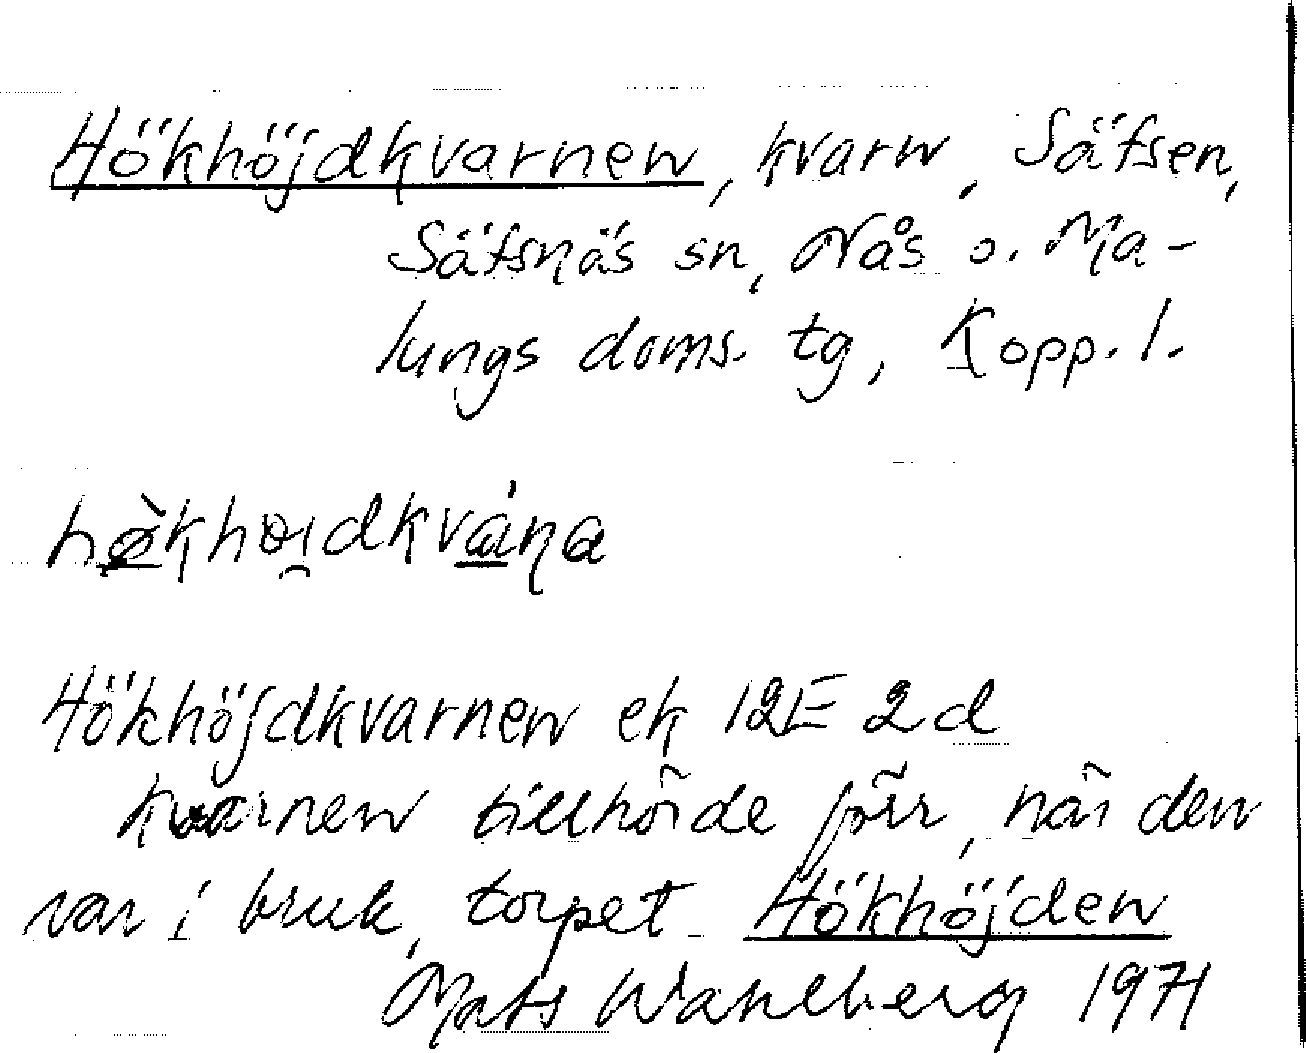 Hökhöjdkvarnen, kvarn, Säfsen,
Säfsnäs sn, Nås o. Ma-
lungs doms. tg, Kopp. l.
hø̀khøi̯dkváṇa
Hökhöjdkvarnen ek 12E 2d
Kvarnen tillhörde förr, när den
var i bruk, torpet Hökhöjden
Mats Wahlberg 1971